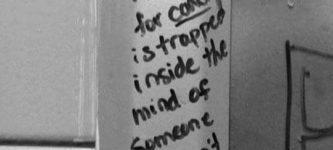 for
is trapped
inside the
mind of
someone